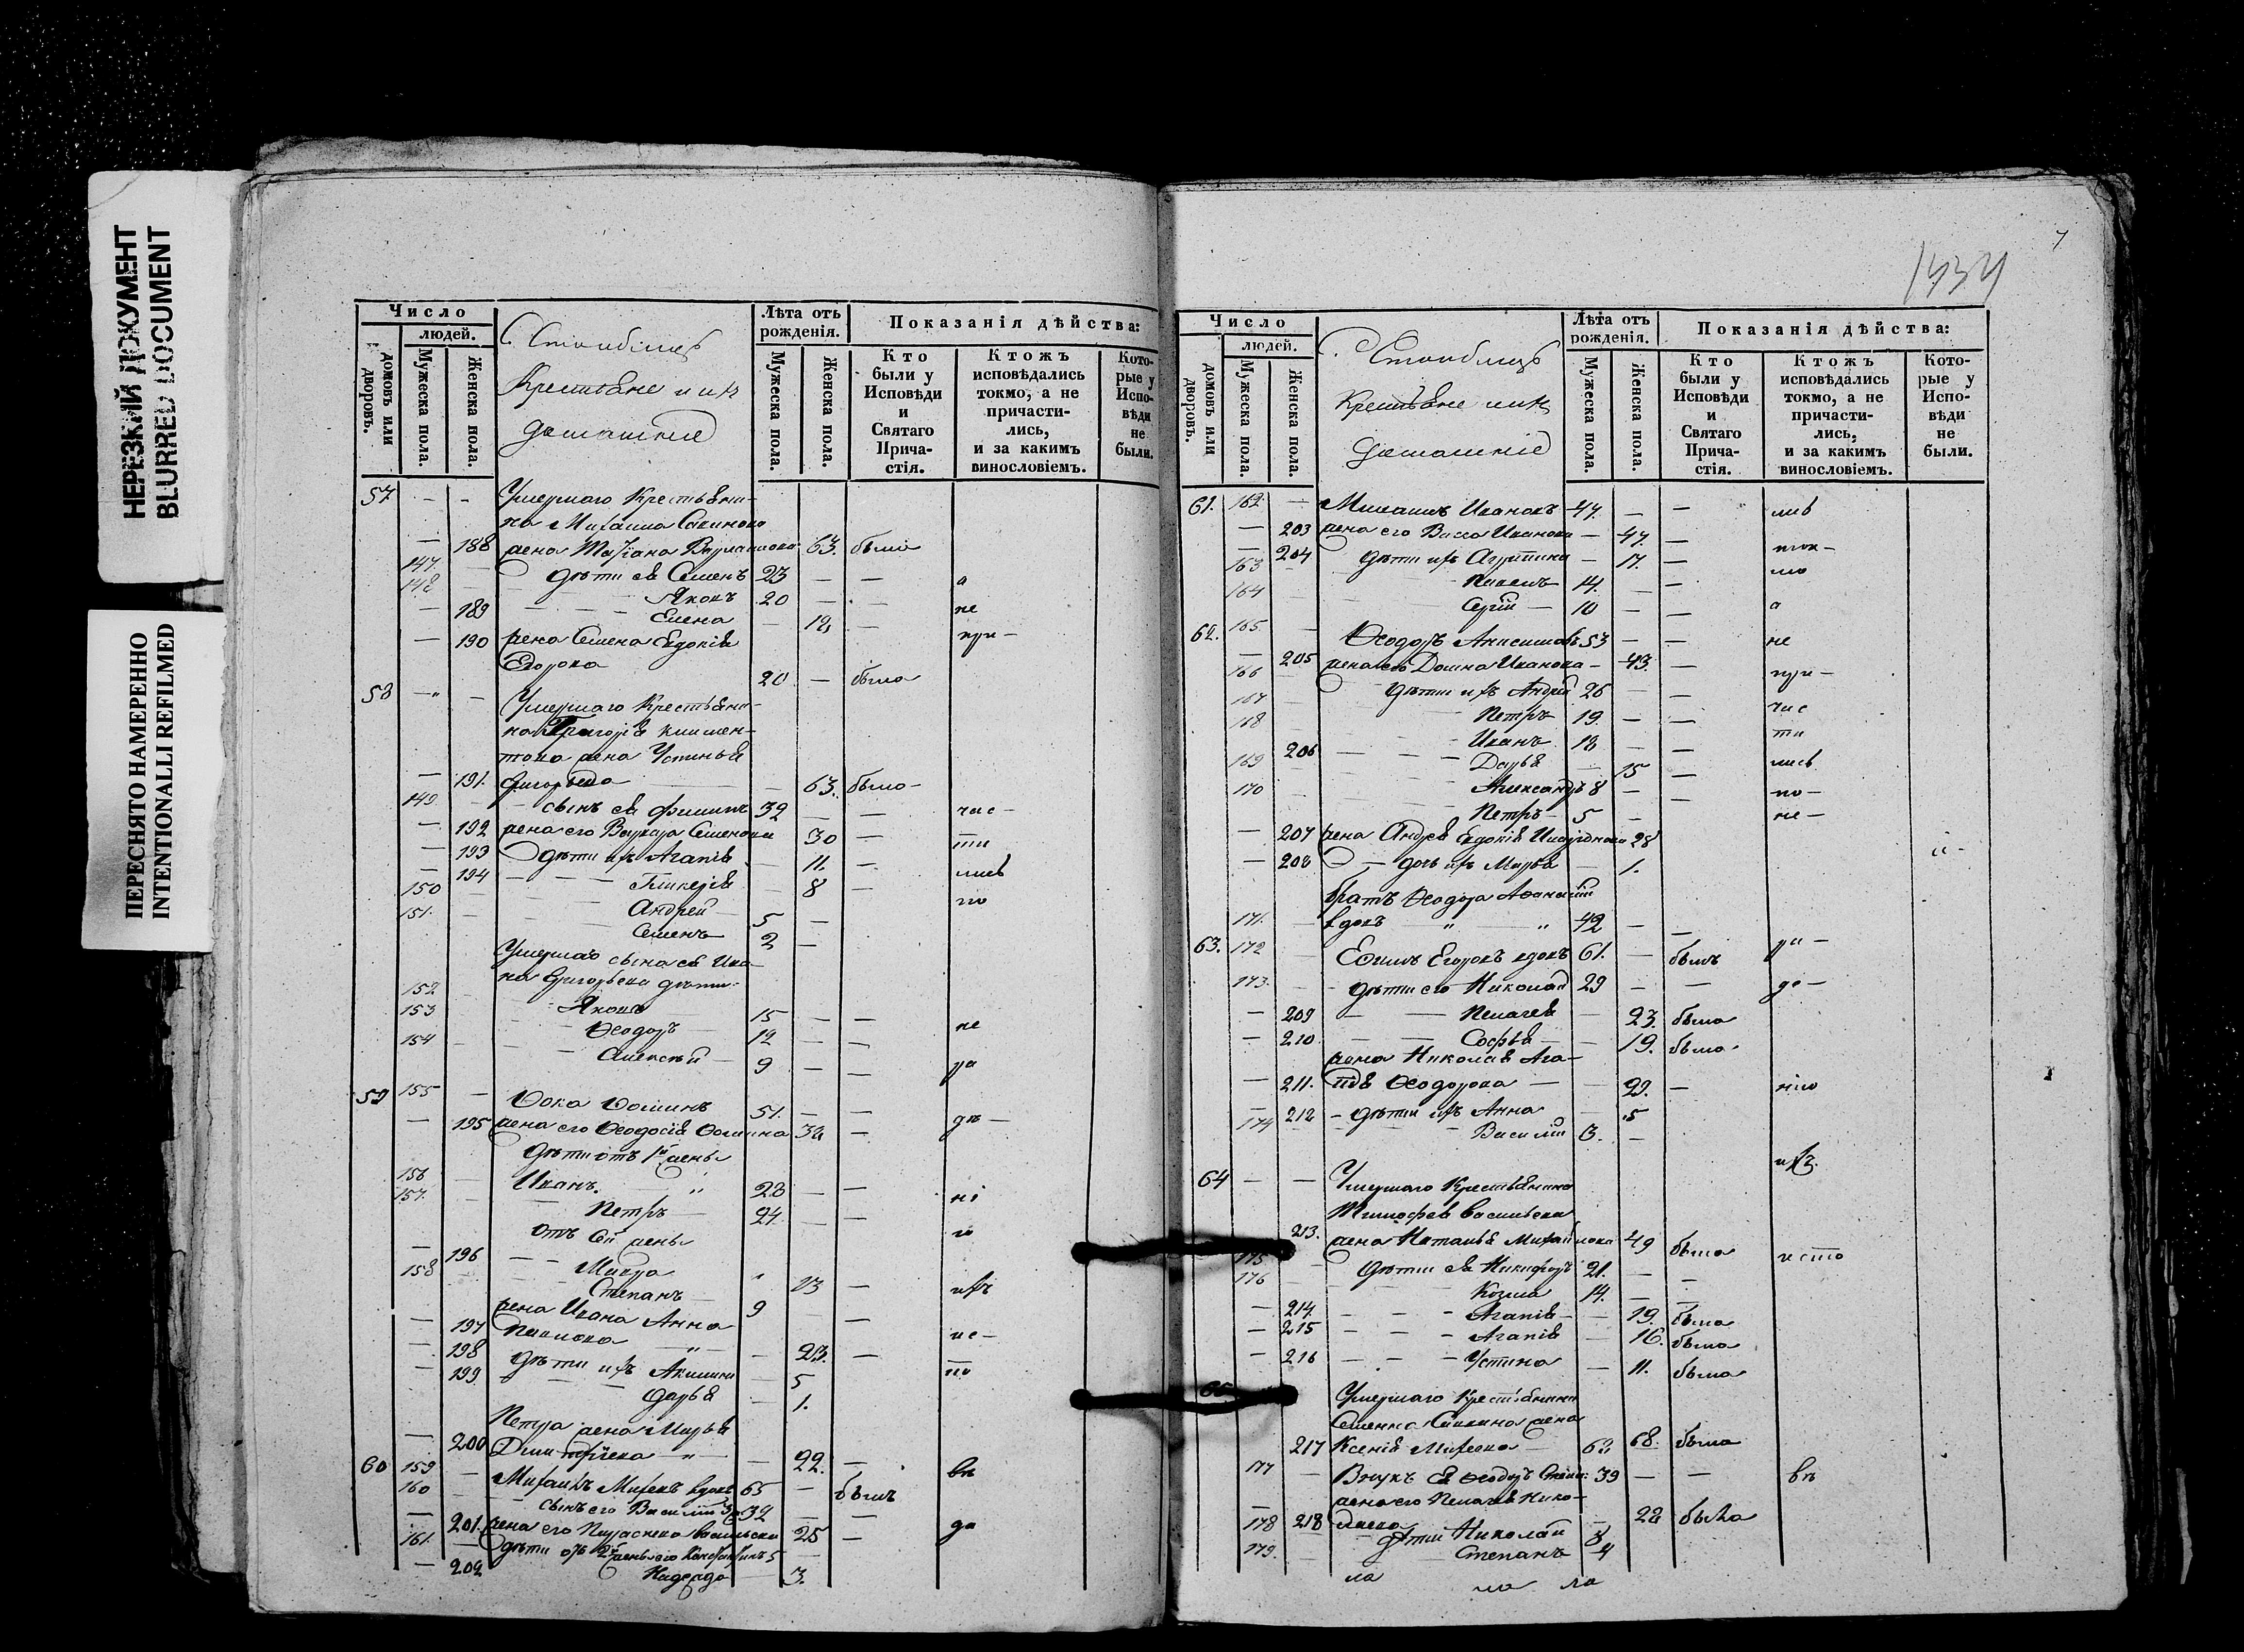 НЕРЕЗКИЙ ДОКУМЕНТ
BLURRED DOCUMENT
ПЕРЕСНЯТО НАМЕРЕННО
INTENTIONALLI REFILMED
Число
людей.
домовъ или дворовъ.
Мужеска пола.
Женска пола.
Крестьяне и ихъ
домашніе
Лѣта отъ рожденія.
Мужеска пола.
Женска пола.
Показанія дѣйства:
Кто были у Исповѣди и Святаго Прича-стія.
Ктожъ исповѣдались токмо, а не причасти-лись, и за какимъ винословіемъ.
Кото-рые у Испо-вѣди не были.
57 - - Умершаго Крестьяни-
на Михаила
- 188 жена Татіана 63. была
147. дѣти ея Семенъ 23 - - а
148 Яковъ 20 - - не
- 189 Елена - 12 - при-
- 190 жена Семена Евдокія
Егорова 20 - была
58 - - Умершаго Крестьяни-
на Григорія Климен-
това жена Устинья
- 191. Григорьева 63. была
149. сынъ ея Филипъ 32 - - час-
- 192 жена его Варвара Семенова 30 - ти
- 193 дѣти ихъ Агапія - 11. - лись
- 194 Гликерія - 8 - по
150 Андрей 5 -
151. Семенъ 2 -
Умершаго сына ея Ива-
на Григорьева дѣти:
152 Яковъ 15 - - не
153 Ѳеодоръ 12 - -
154 Алексѣй 9 - - ра
59 155 - Ѳока Ѳоминъ 51. - -
- 195 жена его Ѳеодосія 32 - дѣ-
дѣти отъ 1й жены
156 Иванъ 28 - - ні
157. Петръ 24. - - ю
отъ 2й жены
- 196 Мавра 13 - ихъ
158 Степанъ 9 -
жена Ивана Анна
- 197 Павлова - 23. - ис-
- 198 дѣти ихъ Акилина - 5 по
- 199 Дарья - 1.
Петра жена Марья
- 200 Дмитріева - 22. -
60 159 - Михаилъ вдовъ 65 - былъ въ
160 - сынъ его Василій 32 - -
- 201. жена его Параскева Васильева 25 - да
161. дѣти отъ 5
- 202 Надежда 3.
7
1434
Число
людей.
домовъ или дворовъ.
Мужеска пола.
Женска пола.
Крестьяне и ихъ
домашніе
Лѣта отъ рожденія.
Мужеска пола.
Женска пола.
Показанія дѣйства:
Кто были у Исповѣди и Святаго Прича-стія.
Ктожъ исповѣдались токмо, а не причасти-лись, и за какимъ винословіемъ.
Кото-рые у Испо-вѣди не были.
61. 162. - Ивановъ 47. - - лись
- 203 жена его Васса Иванова - 47. - ток-
- 204 дѣти ихъ Агрипина - 17. - мо
163 Павелъ 14. - -
164 Сергій 10 - - а
62. 165 Ѳеодоръ Анисимовъ 53 - - не
- 205 жена его Домна Иванова - 43. - при-
166 дѣти ихъ Андрей 26 - - час
167 Петръ 19. - -
168 Иванъ 18 - - ти
206 Дарья 15 - лись
169 Александръ 8 - - по-
170 Петръ 5 - не-
- 207 жена Андрея Евдокія 28
- 208 дочь ихъ Марья 1.
братъ Ѳеодора
171. вдовъ 42 - -
63. 172 Егоровъ вдовъ 61. - былъ ра-
173. дѣти его Николай 29 - - де-
- 209 Пелагея 23. была
- 210 Софья 19. была
жена Николая Ага-
- 211. пія Ѳеодорова 29. - нію
- 212 дѣти ихъ Анна 5
174 Василій 3. -
ихъ.
64 - - Умершаго Крестьянина
Тимоѳея Васильева
213. жена Наталья Михайлова 49 была исто
175 дѣти ея Никифоръ 21. - -
176 Козма 14. - -
- 214. Агапія 19. была
- 215 Агапія 16. была
- 216 Устина 11. была
65 Умершаго Крестьянина
Семена жена
217 Ксенія 68. была
177 - Внукъ ея Ѳеодоръ 39 - - въ
жена его Пелагея Нико-
- 218 лаева 22 была
178 дѣти Николай 8
179. Степанъ 4